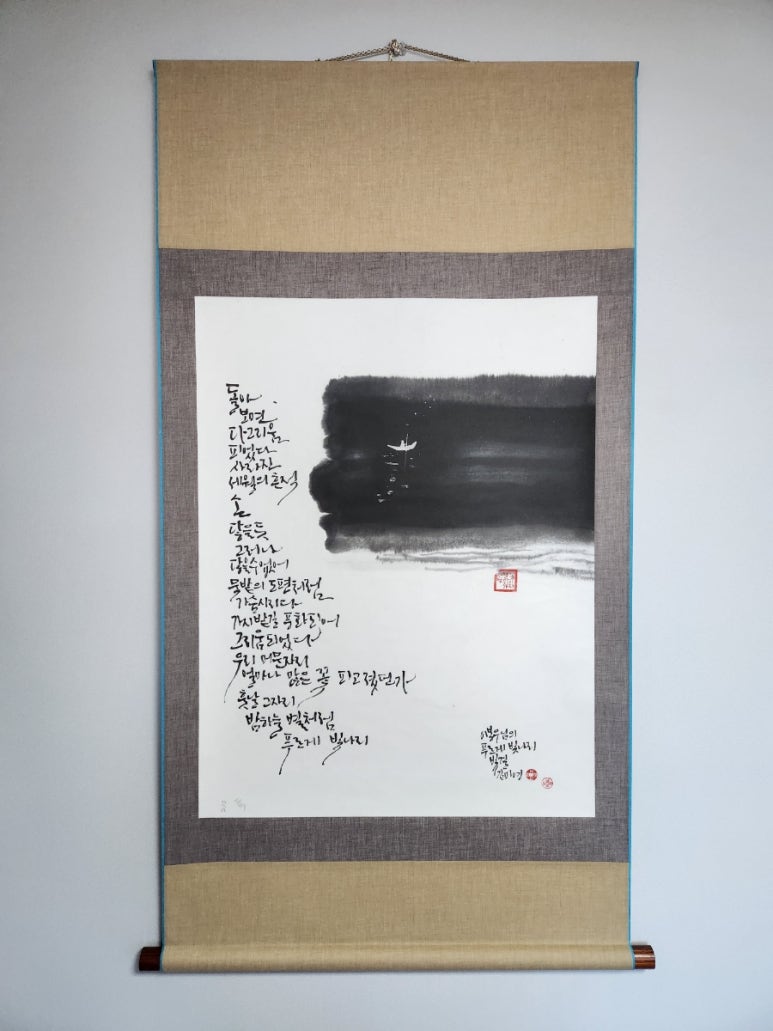 돌아
보면
다 그리움
피었다
사라진
세월의 흔적
손
닿을 듯
그러나
닿을 수 없어
물밭의 도편처럼
가슴 시리다
가시밭길 푸화 되어
그리움 되었다
우리 머문 자리
얼마나 많은 꽃 피고 졌던가
훗날 그 자리
밤하늘 별처럼
푸르게 빛나리
푸르게 빛나리